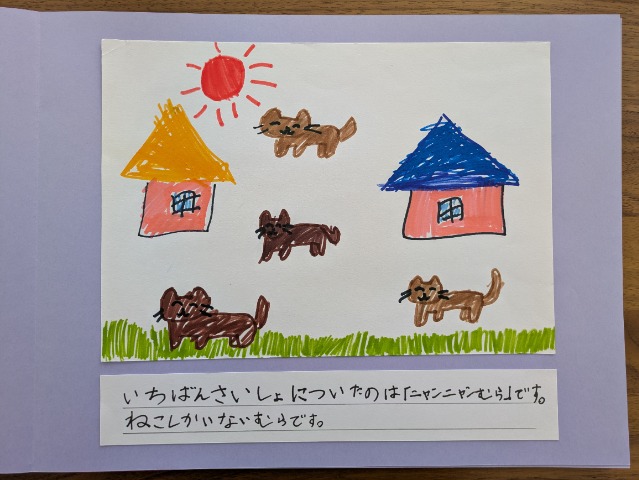 いちばんさいしょについたのは「ニャンニャンむら」です。
ねこしかいないむらです。